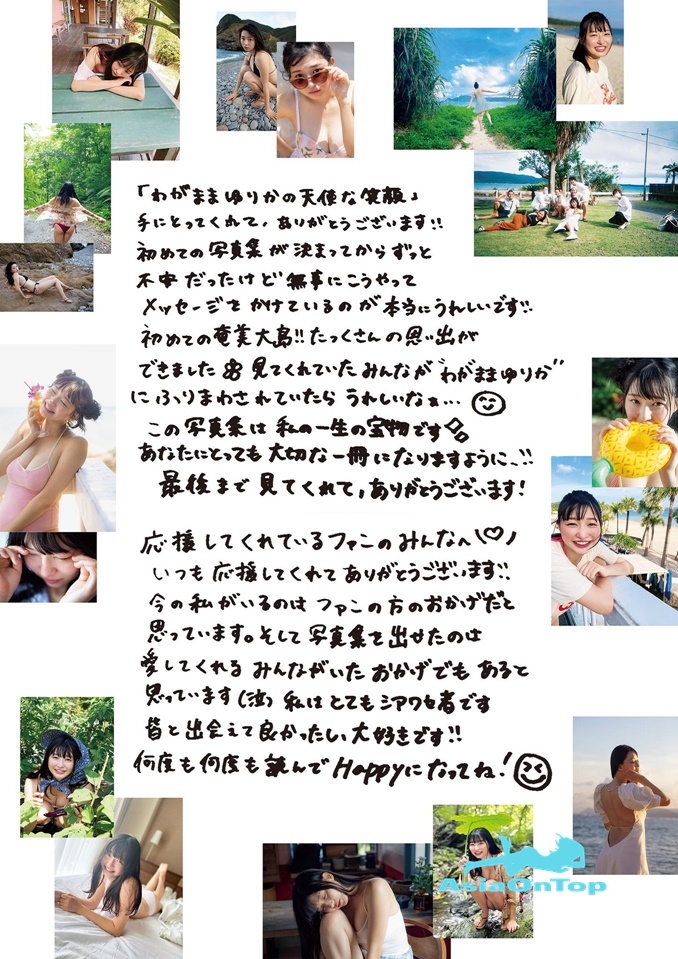 「わがままゆりかの天使な笑顔」
手にとってくれて、ありがとうございます!!
初めての写真集が決まってからずっと
不安だったけど無事にこうやって
メッセージをかけているのが本当にうれしいです!!
初めての奄美大島!!たっくさんの思い出が
できました 見てくれていたみんなが"わがままゆりか"
にふりまわされていたら うれしいなぁ…
この写真集は私の一生の宝物です
あなたにとっても大切な一冊になりますように、!!
最後まで見てくれて、ありがとうございます!
応援してくれているファンのみんなへ(♡)
いつも応援してくれてありがとうございます!!
今の私がいるのはファンの方のおかげだと
思っています。そして写真集を出せたのは
愛してくれるみんながいたおかげでもあると
思っています(泣) 私はとてもシアワセ者です
皆と出会えて良かったい 大好きです!!
何度も何度も読んでHappyになってね!
AsiaOnTop